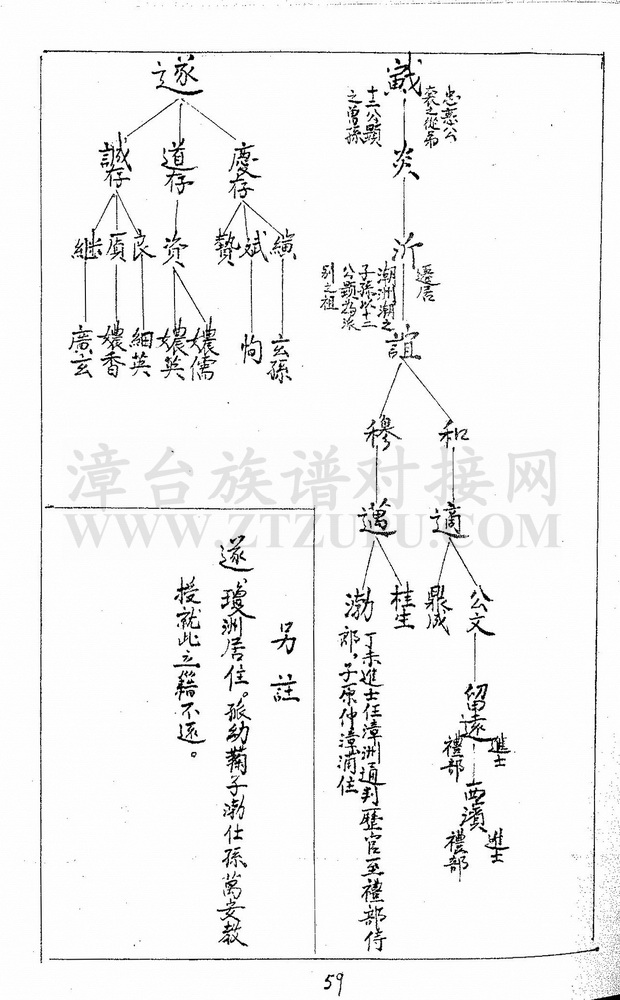 忠惠公
襄之從弟
十三公顯
之曾孫
炎
沂
遷居
潮洲潮之
子孫以十二
公顯為派
別之祖
誼
和
穆
適
邁
公文
鼎成
桂生
渤
留遠
進士
禮部
西濱
進士
禮部
丁未進士任漳洲通判歷官至禮部侍
郎，子原仲漳浦住
遂
慶存
道存
誠存
績
斌
贊
資
良
頂
継
玄孫
恂
嬝儒
嬝英
細英
嬝香
廣玄
另註
遂、瓊洲居住。孫幼鞠子渤仕孫、萬安教
授就此立籍不返。
漳台族谱对接网
WWW.ZTZUPU.COM
59